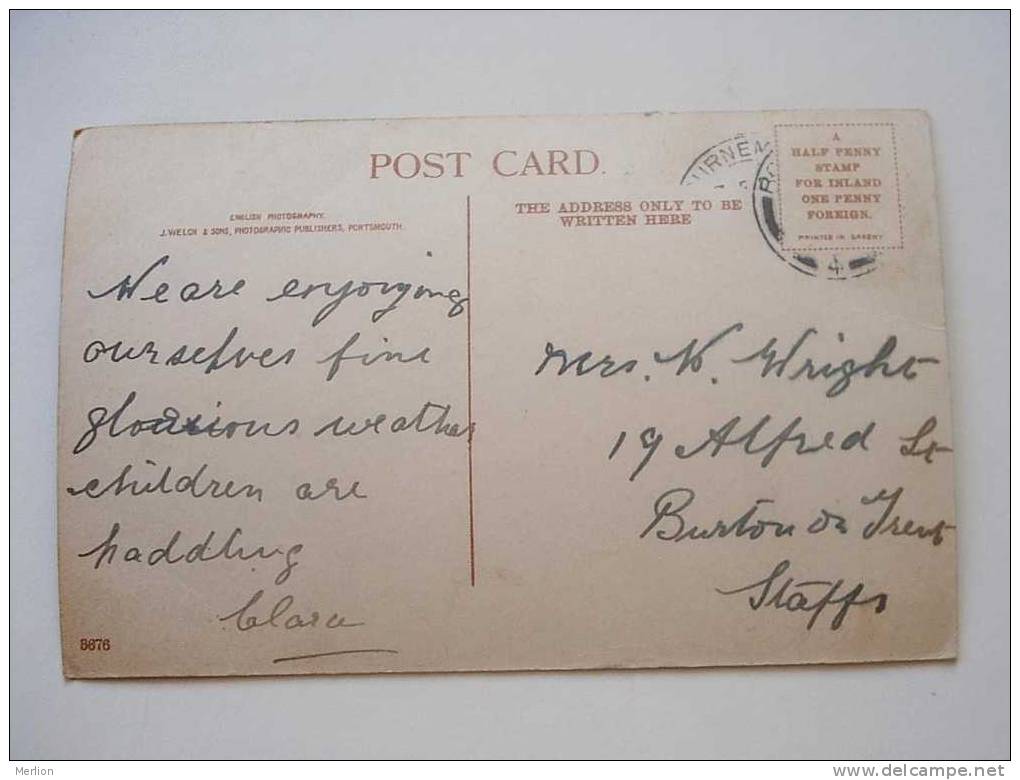 POST CARD.
ENGLISH PHOTOGRAPHY.
J. WELCH & SONS, PHOTOGRAPHIC PUBLISHERS, PORTSMOUTH.
THE ADDRESS ONLY TO BE
WRITTEN HERE
A
HALF PENNY
STAMP
FOR INLAND
ONE PENNY
FOREIGN.
PRINTED IN SAXONY
URNEM
4
We are enjoying
ourselves fine
glorious weather
children are
paddling
Clara
8676
Mrs. W. Wright
19 Alfred St
Burton on Trent
Staffs
Merlion
www.delcampe.net